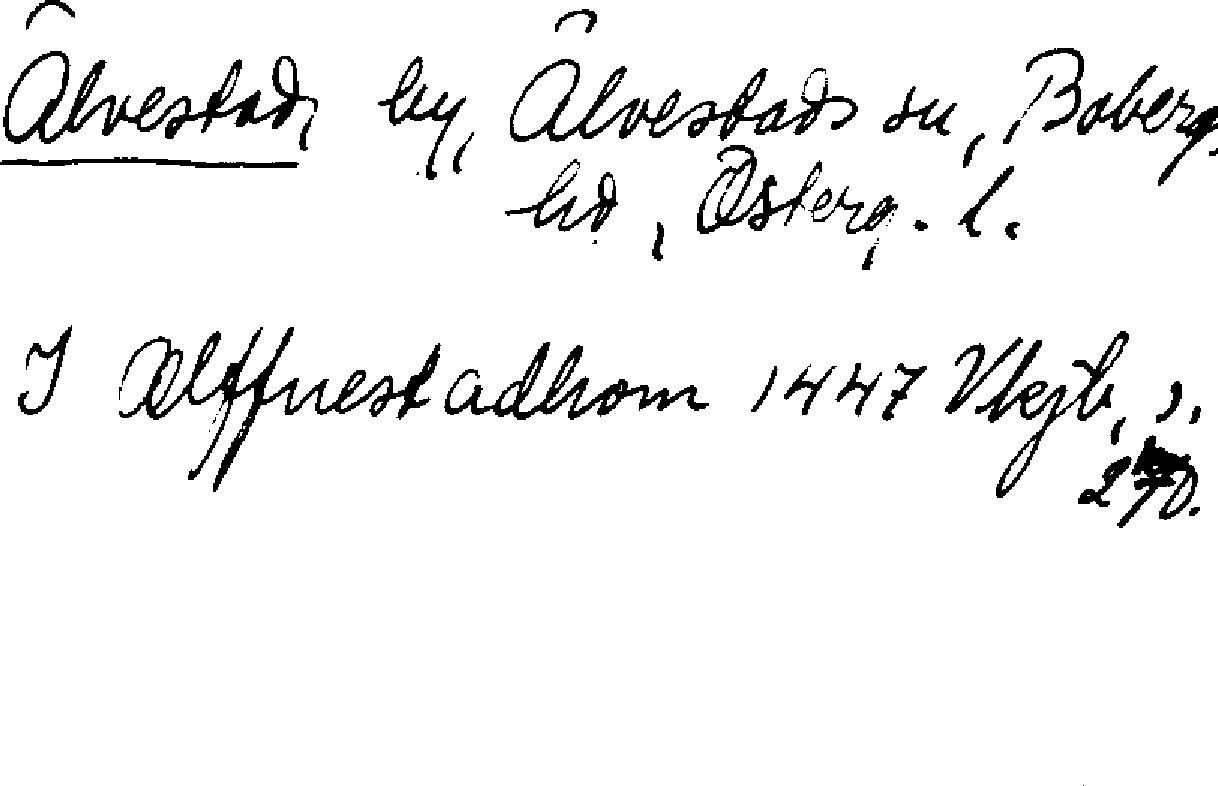 Älvestad, by, Älvestads sn, Boberg
hd, Österg. l.
I Ælffuestadhom 1447 Vkjb, s.
270.